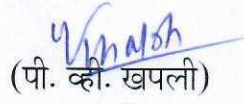 (पी. व्ही. खपली)